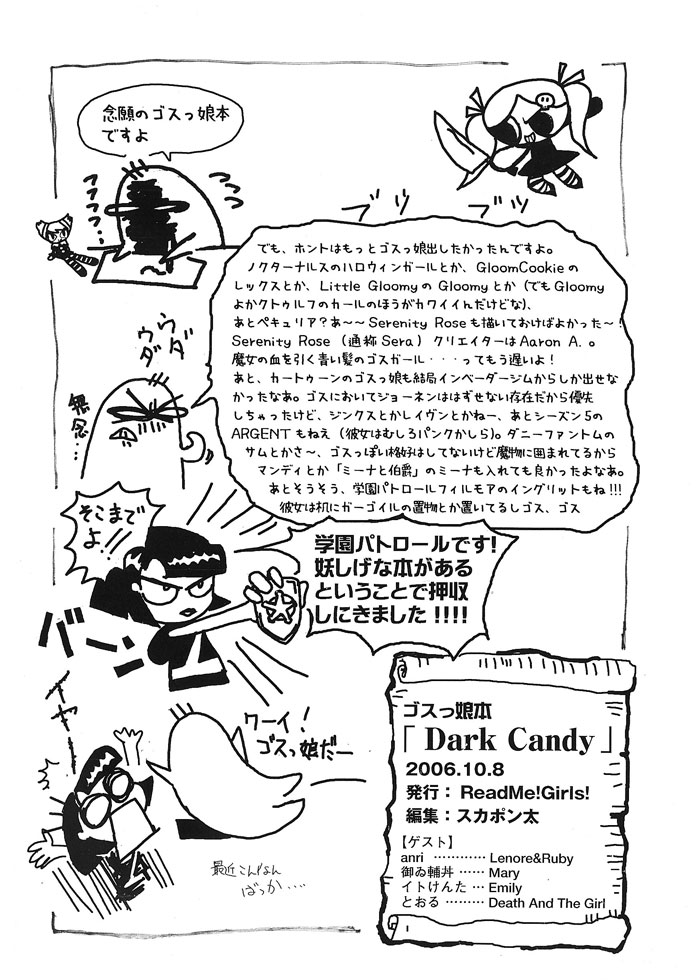 念願のゴスっ娘本
ですよ
フフフフフ…
フフフ
ブツ　ブツ
でも、ホントはもっとゴスっ娘出したかったんですよ。
ノクターナルスのハロウィンガールとか、GloomCookieの
レックスとか、Little GloomyのGloomyとか(でもGloomy
よかクトゥルフのカールのほうがカワイイんだけどな)、
あとペキュリア?あ～～Serenity Roseも描いておけばよかった～!
Serenity Rose (通称Sera) クリエイターはAaron A.。
魔女の血を引く青い髪のゴスガール・・・ってもう遅いよ!
あと、カートゥーンのゴスっ娘も結局インベーダージムからしか出せな
かったなあ。ゴスにおいてジョーネンははずせない存在だから優先
しちゃったけど、ジンクスとかレイヴンとかねー、あとシーズン5の
ARGENTもねえ(彼女はむしろパンクかしら)。ダニーファントムの
サムとかさ～、ゴスっぽい格好はしてないけど魔物に囲まれてるから
マンディとか「ミーナと伯爵」のミーナも入れても良かったよなあ。
あとそうそう、学園パトロールフィルモアのイングリットもね!!!
彼女は机にガーゴイルの置物とか置いてるしゴス、ゴス
ウダウダ
無念…
そこまで
よ!!
学園パトロールです!
妖しげな本がある
ということで押収
しにきました!!!!
バーン
イヤー
ワーイ!
ゴスっ娘だー
最近こんなん
ばっか….
ゴスっ娘本
「Dark Candy」
2006.10.8
発行： ReadMe!Girls!
編集：スカポン太
【ゲスト】
anri ………… Lenore&Ruby
御ゐ輔丼 …… Mary
イトけんた … Emily
とおる ……… Death And The Girl